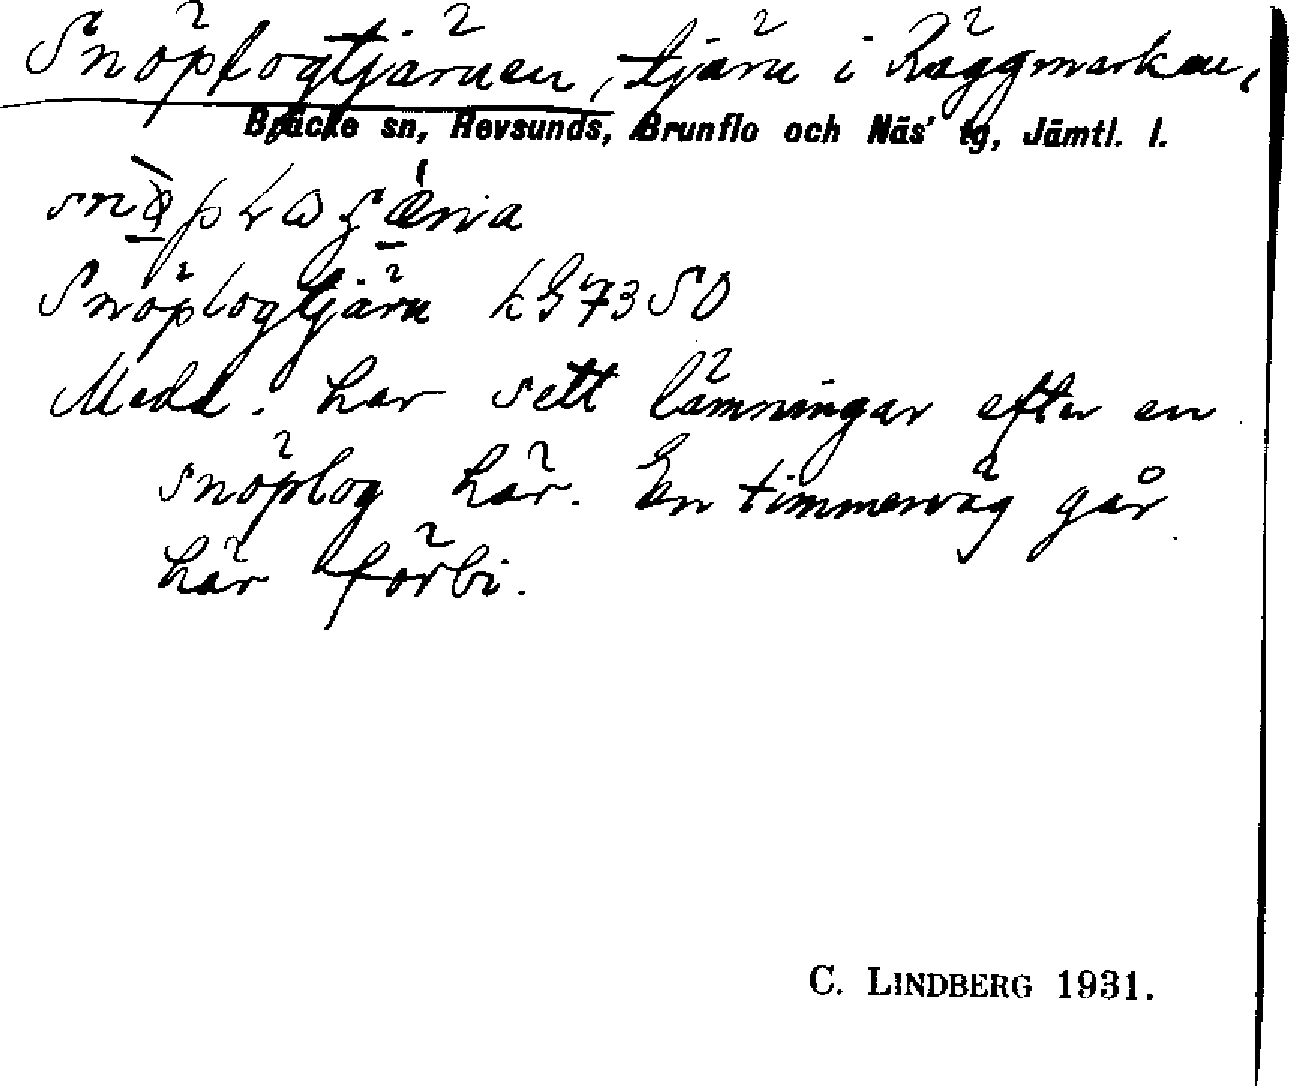 Snöplogtjärnen, tjärn i Räggmarken,
Bräcke sn, Revsunds, Brunflo och Näs' tg, Jämtl. l.
Snöplogtjärn kG73SO
Medd. har sett lämningar efter en
snöplog här. En timmerväg går
här förbi.
C. LINDBERG 1931.